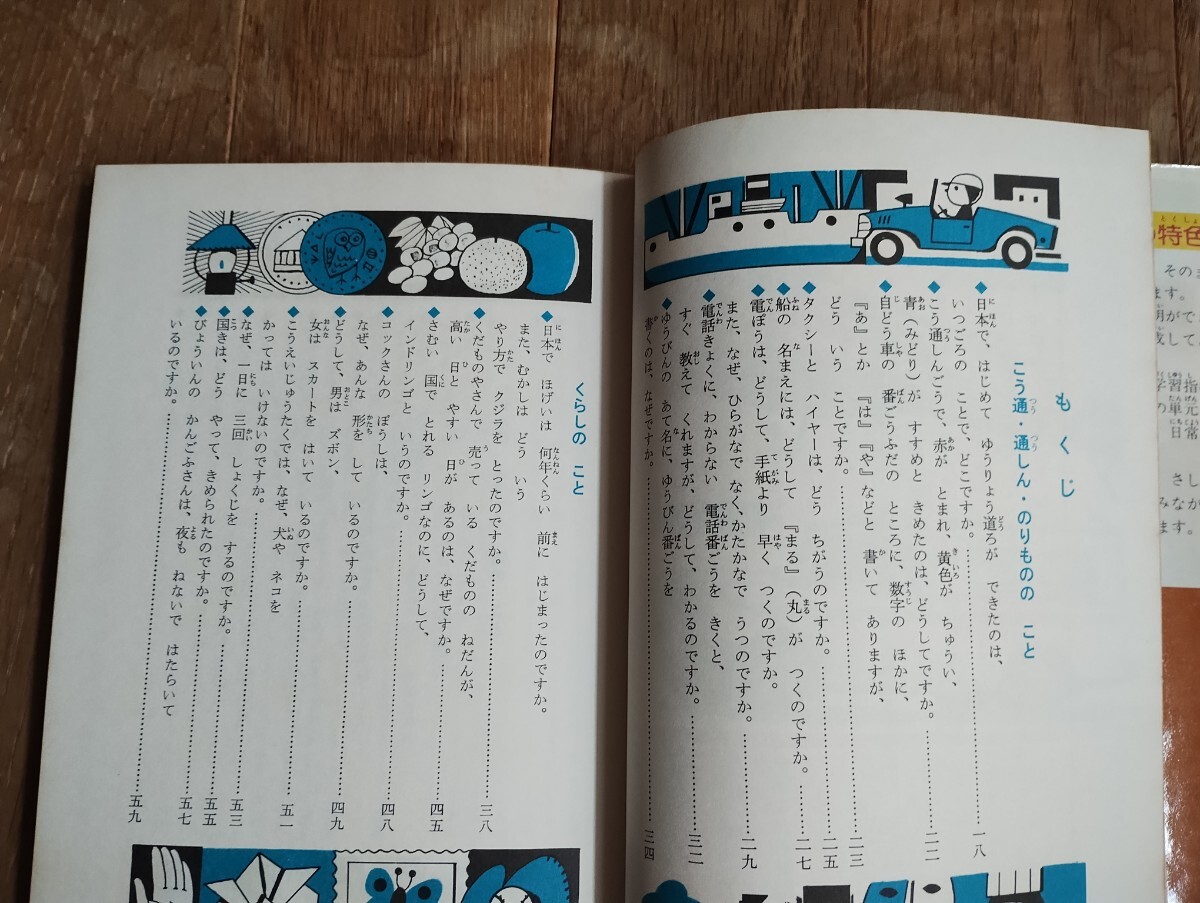 もくじ
こう通・通しん・のりものの こと
◆日本で、はじめて ゆうりょう道ろが できたのは、
いつごろの ことで、どこですか。……一八
◆こう通しんごうで、赤が とまれ、黄色が ちゅうい、
青（みどり）が すすめと きめたのは、どうしてですか。……二二
◆自どう車の 番ごうふだの ところに、数字の ほかに、
『あ』とか 『は』『や』などと 書いて ありますが、
どう いう ことですか。……二三
◆タクシーと ハイヤーは、どう ちがうのですか。……二五
◆船の 名まえには、どうして 『まる』（丸）が つくのですか。……二七
◆電ぽうは、どうして、手紙より 早く つくのですか。
また、なぜ、ひらがなで なく、かたかなで うつのですか。……二九
◆電話きょくに、わからない 電話番ごうを きくと、
すぐ 教えて くれますが、どうして、わかるのですか。……三二
◆ゆうびんの あて名に、ゆうびん番ごうを
書くのは、なぜですか。……三四
くらしの こと
◆日本で ほげいは 何年くらい 前に はじまったのですか。
また、むかしは どう いう
やり方で クジラを とったのですか。……三八
◆くだものやさんで 売って いる くだものの ねだんが、
高い 日と やすい 日が あるのは、なぜですか。……四五
◆さむい 国で とれる リンゴなのに、どうして、
インドリンゴと いうのですか。……四八
◆コックさんの ぼうしは、
なぜ、あんな 形を して いるのですか。……四九
◆どうして、男は ズボン、
女は スカートを はいて いるのですか。……五一
◆こうえいじゅうたくでは、なぜ、犬や ネコを
かっては いけないのですか。……五三
◆なぜ、一日に 三回 しょくじを するのですか。……五五
◆国きは、どう やって、きめられたのですか。……五七
◆びょういんの かんごふさんは、夜も ねないで はたらいて
いるのですか。……五九
特色
その
ます。
明がで
成して
学習指
の単元
日常
さし
みなが
ます。